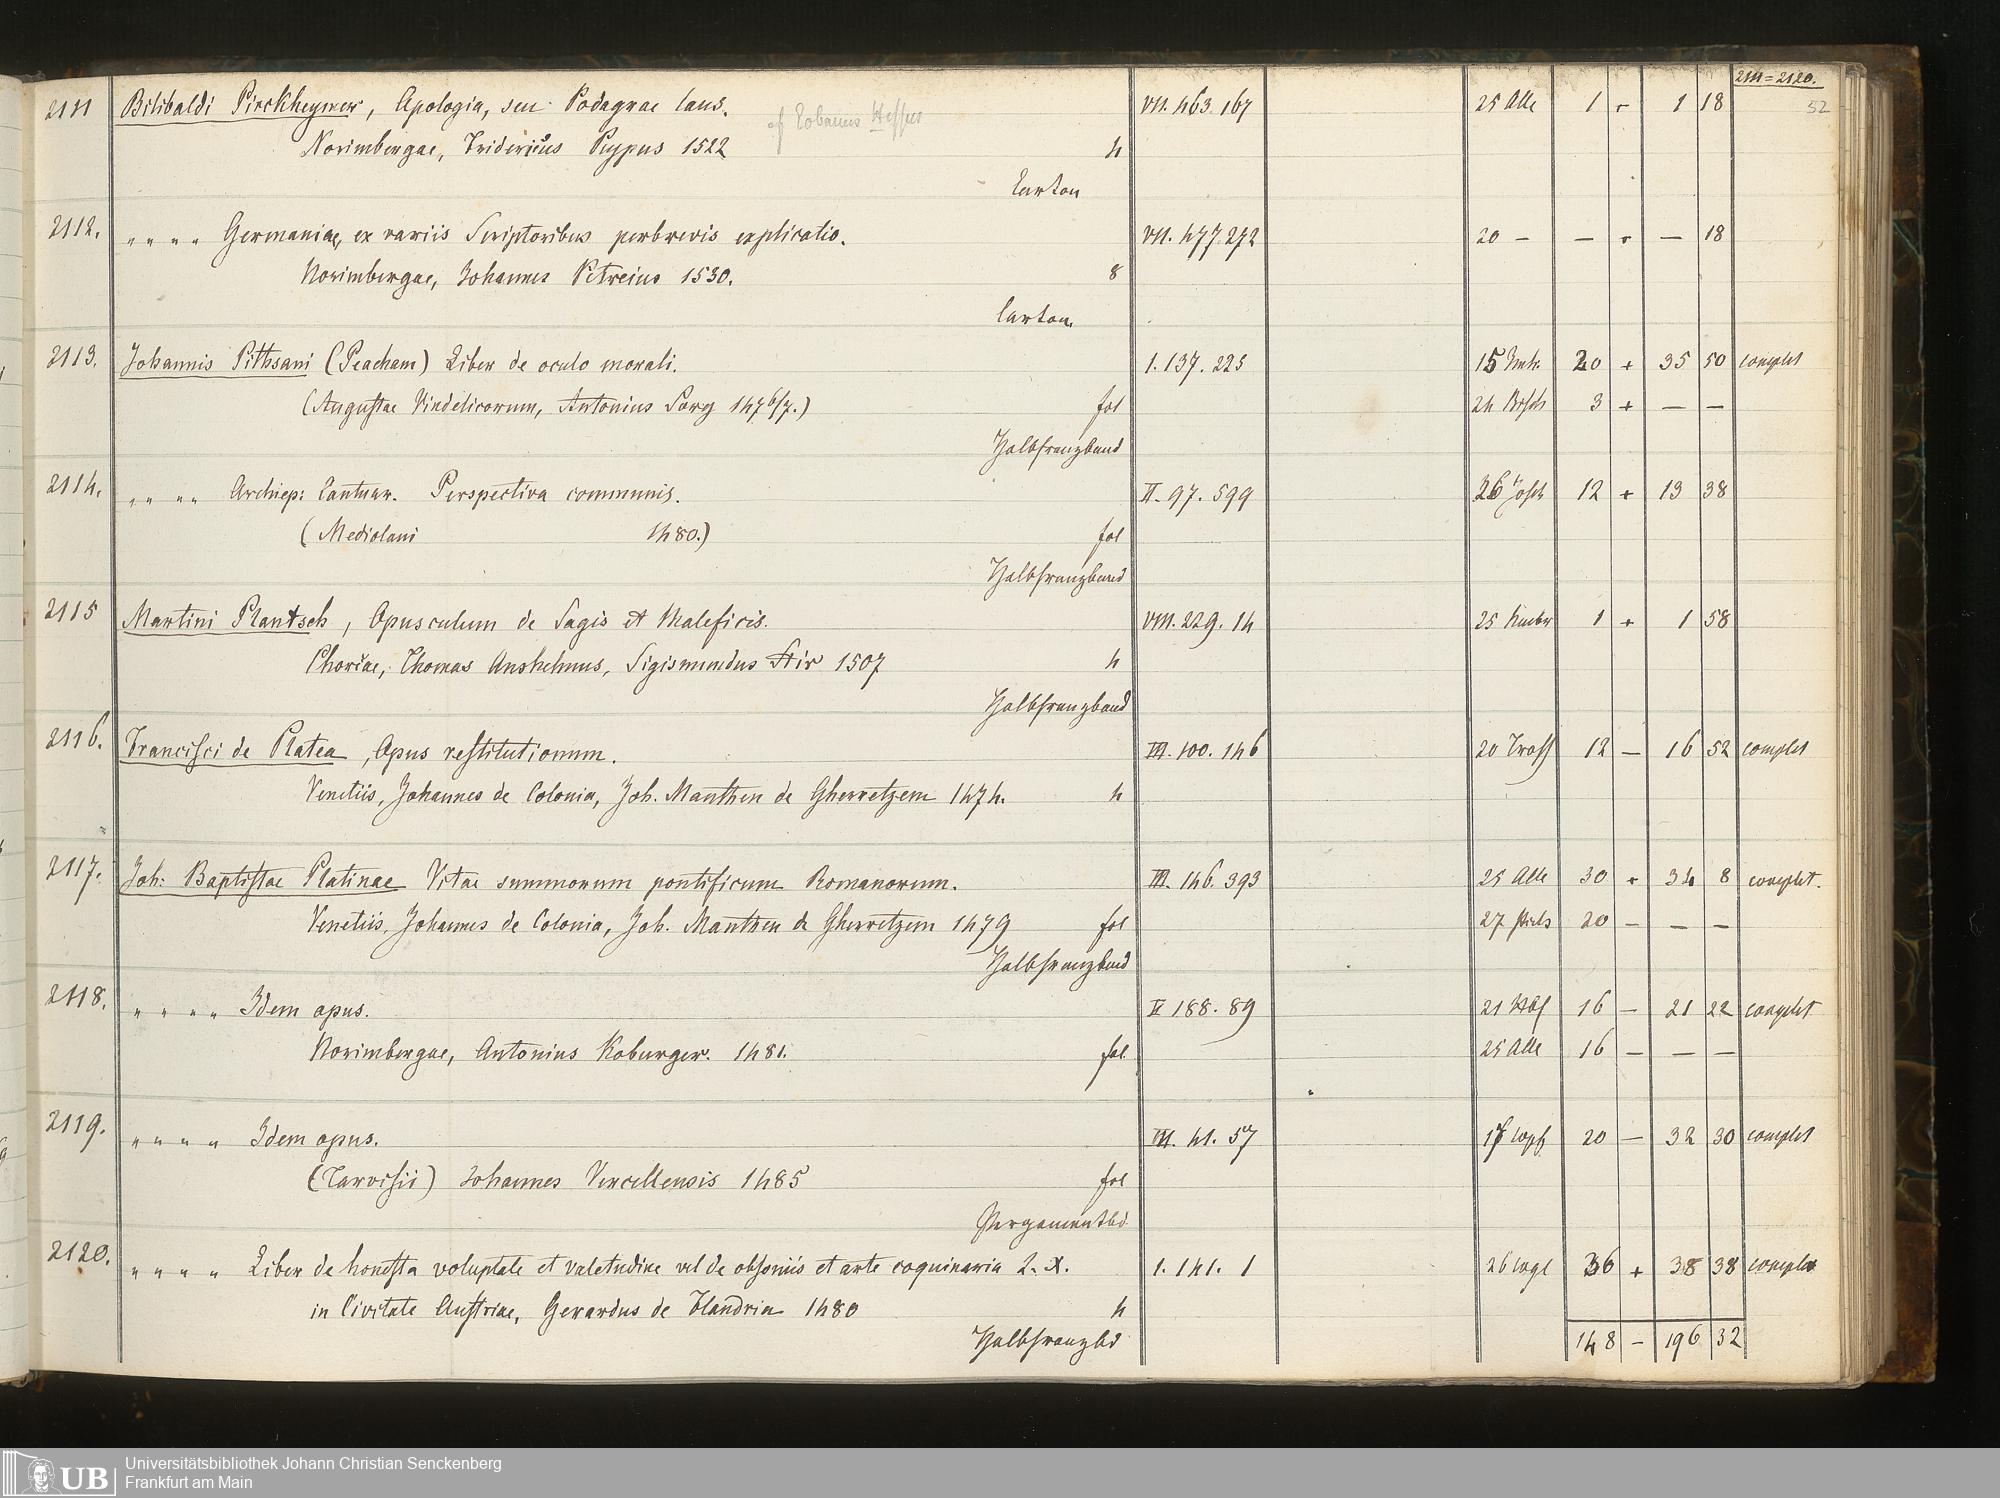 2111=2120.
52
2111 Bilibaldi Pirckheymer, Apologia, seu Podagrae laus. VII. 463. 167 25 Alle 1 - 1 18
cf Eobanus Hessus
Norimbergae, Fridericus Peypus 1522 4
Carton
2112. " " " " Germaniae, ex variis Scriptoribus perbrevis explicatio. VII. 477. 272 20 - - - - 18
Norimbergae, Johannes Petreius 1530. 8
Carton.
2113. Johannis Pithsani (Peacham) Liber de oculo morali. 1. 137. 225 15 20 + 35 50 complet
(Augustae Vindelicorum, Antonius Sorg 1476/7.) fol 24 3 + - -
Halbfranzband
2114. " " " " Archiep: Cantuar. Perspectiva communis. II. 97. 599 26 12 + 13 38
(Mediolani 1480.) fol
Halbfranzband
2115 Martini Plantsch, Opusculum de Sagis et Maleficis. VIII. 229. 14 25 1 + 1 58
Phorcae, Thomas Anshelmus, Sigismundus Stir 1507 4
Halbfranzband
2116. Francisci de Platea, Opus restitutionum. III. 100. 146 20 Tross 12 - 16 52 complet
Venetiis, Johannes de Colonia, Joh. Manthen de Gherretzem 1474. 4
2117. Joh: Baptistae Platinae Vitae summorum pontificum Romanorum. III. 146. 393 25 Alle 30 + 34 8 complet.
Venetiis, Johannes de Colonia, Joh. Manthen de Gherretzem 1479 fol 27 20 - - -
Halbfranzband
2118. " " " " Idem opus. V 188. 89 21 16 - 21 22 complet
Norimbergae, Antonius Koburger. 1481. fol 25 Alle 16 - - -
2119. " " " " Idem opus. VII. 41. 57 20 - 32 30 complet
(Tarvisii) Johannes Vercellensis 1485 fol
Pergamentbd
2120. " " " " Liber de honesta voluptate et valetudine vel de obsoniis et arte coquinaria L. X. 1. 141. 1 26 36 + 38 38 complet
in Civitate Austriae, Gerardus de Flandria 1480 4
Halbfranzbd 148 - 196 32
UB
Universitätsbibliothek Johann Christian Senckenberg
Frankfurt am Main